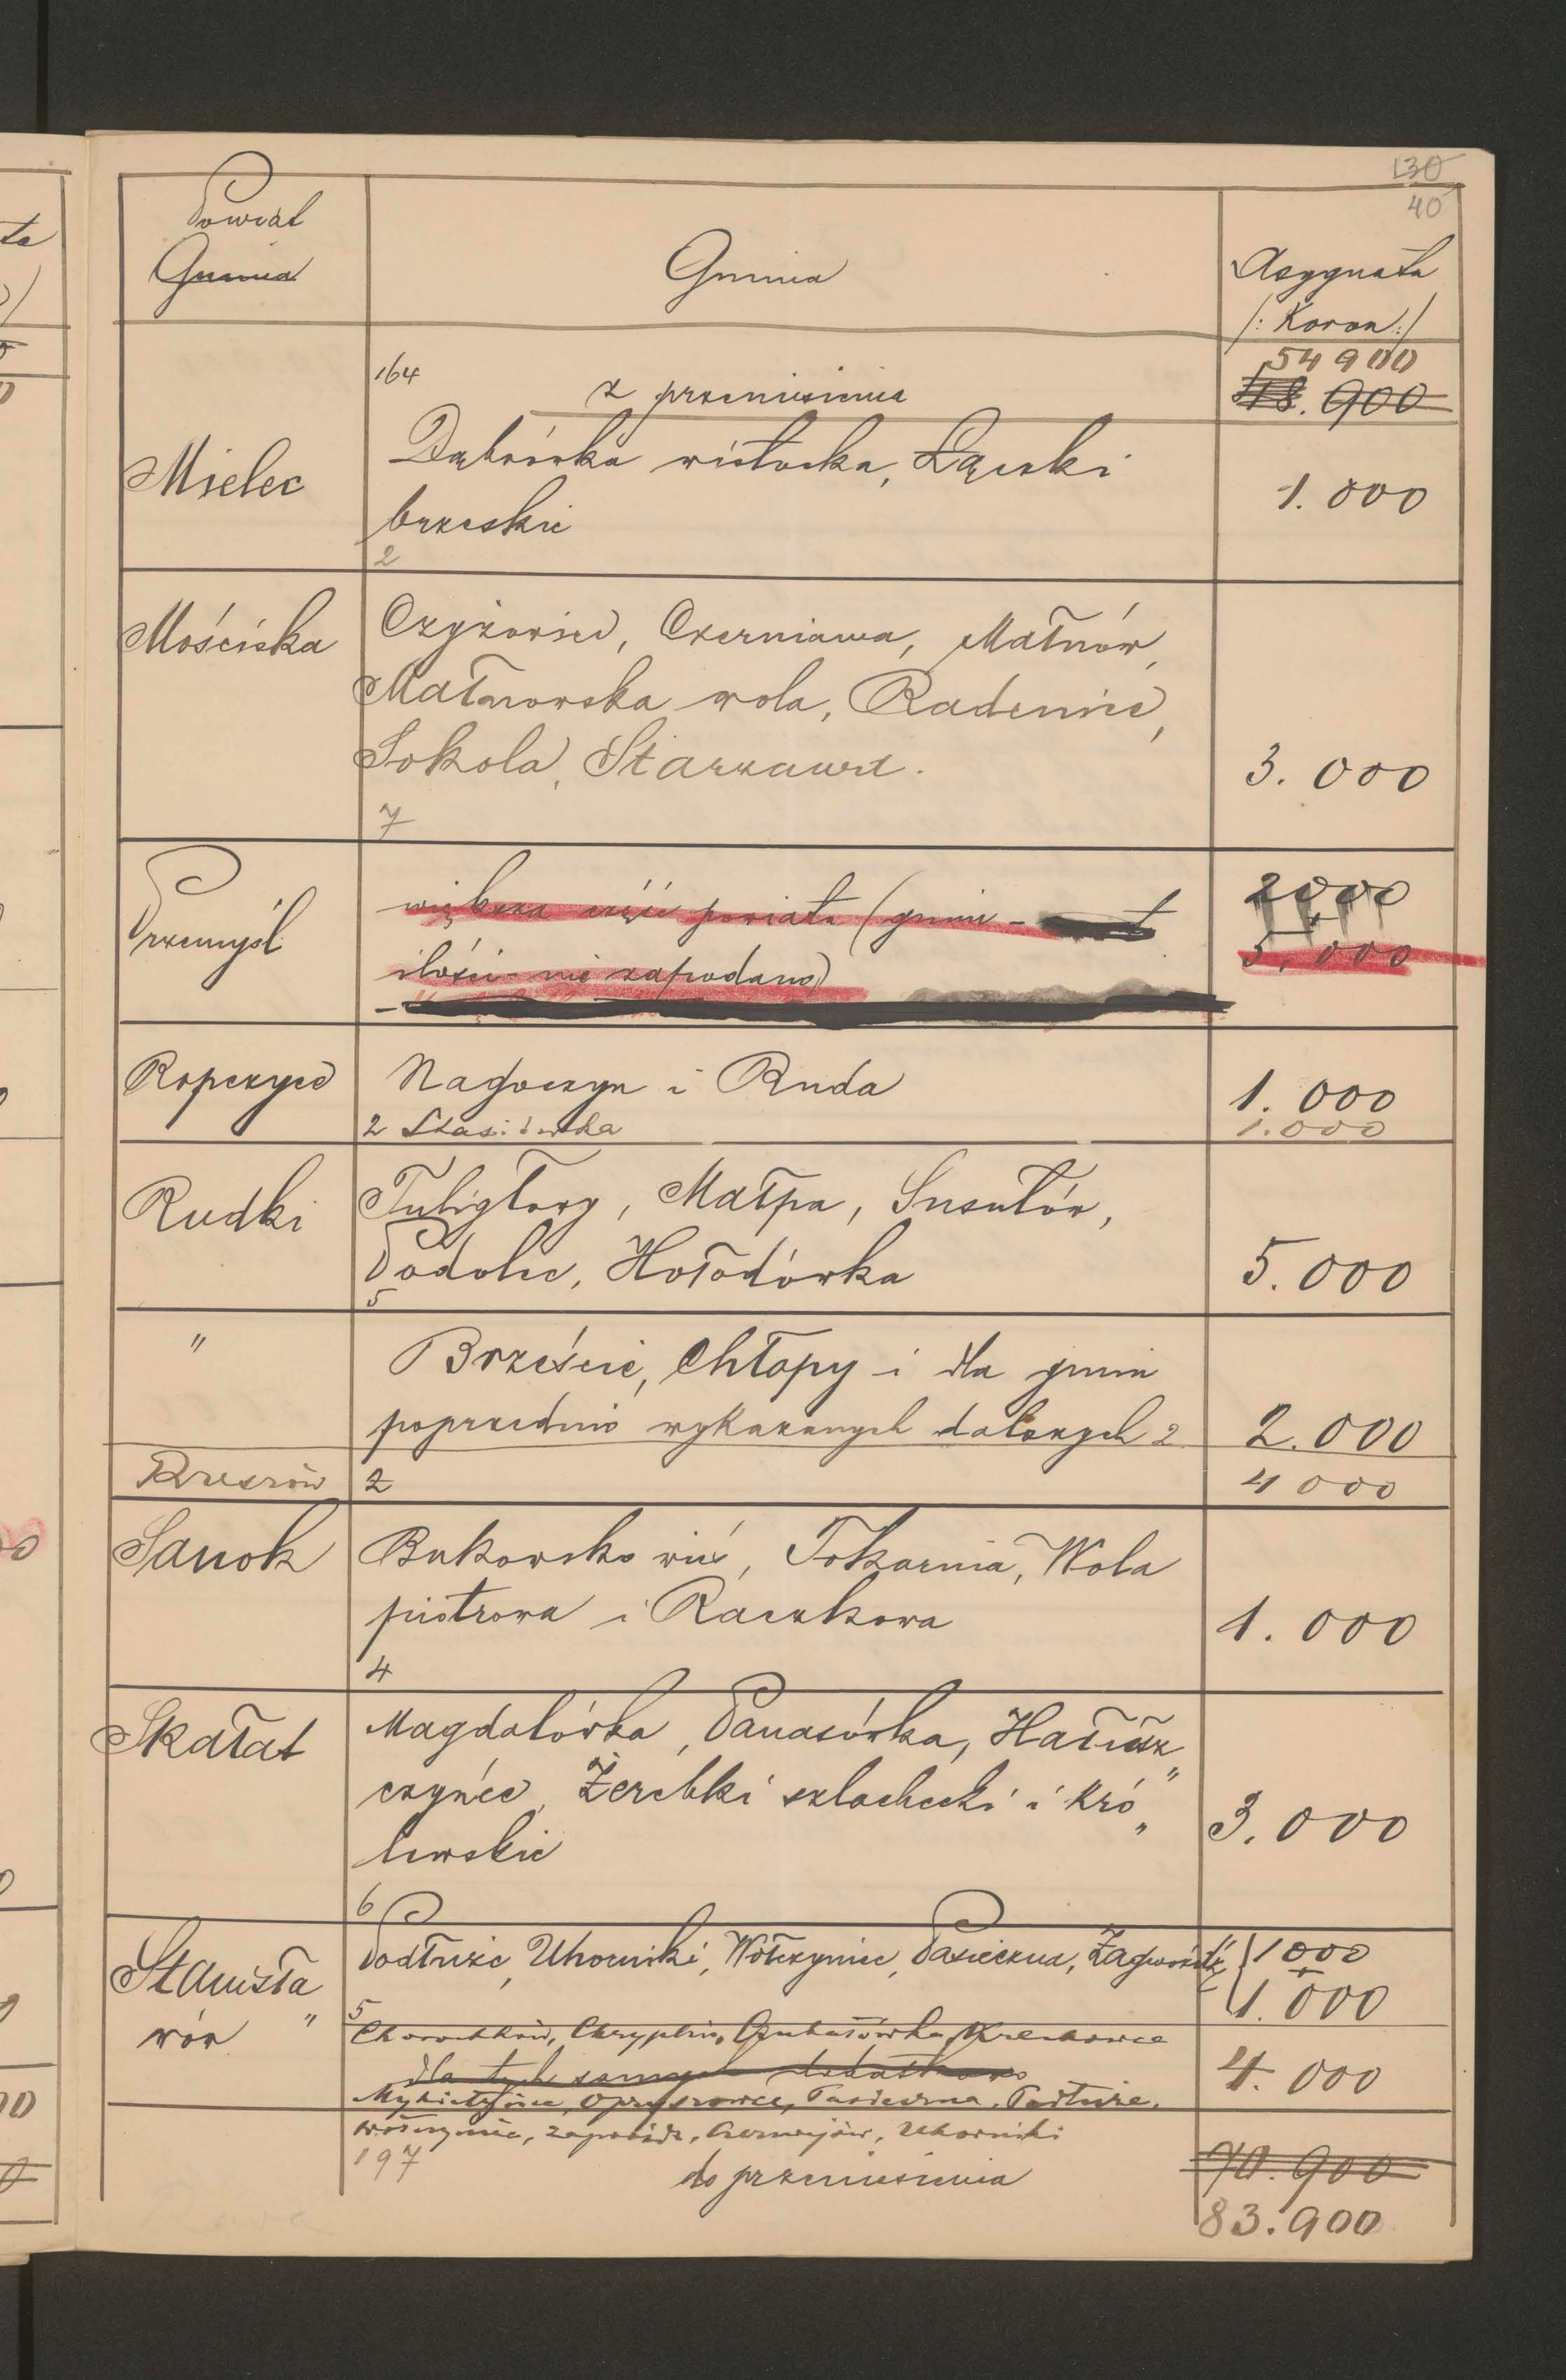 130
40
Powiat
Gmina
Gmina
Asygnata
/: Koron :/
164
z przeniesienia
54 900
48.900
Mielec
Dąbrówka wisłocka, Łączki
brzeskie
1.000
2
Mościska
Czyżowice, Czerniawa, Małnów,
Małnowska wola, Radenice,
Sokola, Starzawa.
3.000
7
Przemyśl
większa część powiatu (gmin -
ilości - nie zapodano)
2000
5.000
Ropczyce
Nagoczyn i Ruda
1.000
2 Stasiówka
1.000
Rudki
Tuligłowy, Małpa, Susułów,
Podolce, Hołodówka
5.000
5
"
Brzeście, Chłopy i dla gmin
poprzednio wykazanych dalszych 2
2.000
Rzeszów
2
4 000
Sanok
Bukowsko wieś, Tokarnia, Wola
piotrowa i Raczkowa
1.000
4
Skałat
Magdalówka, Panasówka, Hałusz„
czyńce, Żerebki szlacheckie i kró„
lewskie
3.000
6
Stanisła„
wów
Podłuże, Uhorniki, Wołczyniec, Pasieczna, Zagwoźdź
1000
+
1.000
5
Chomiaków, Chryplin, Czukałówka, Krechowce
dla tych samych dodatkowo
4.000
Mykietyńce, Opryszowce, Pasieczna, Podłuże,
Wołczyniec, Zagwóźdź, Czerniejów, Uhorniki
197
do przeniesienia
70.900
83.900